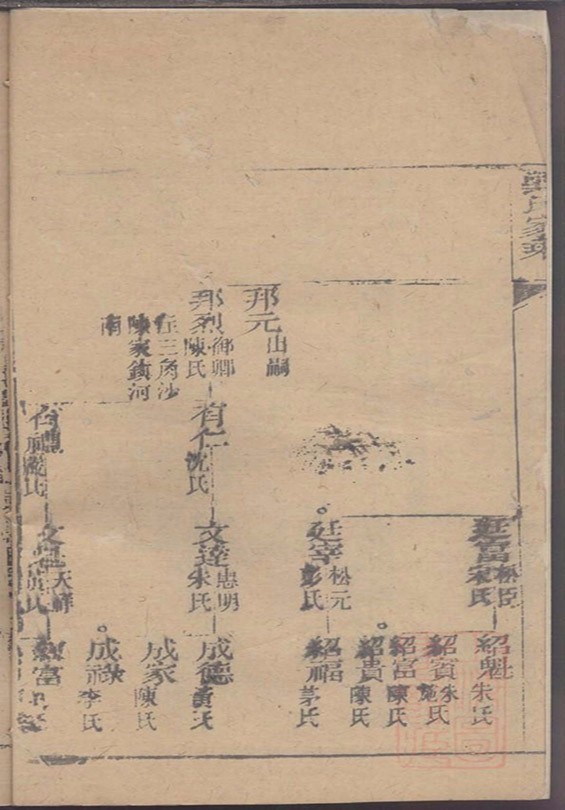 氏家
廷富 松臣 宋氏
紹魁 朱氏
紹賓 朱氏 施氏
紹富 陳氏
紹貴 陳氏
廷宰 松元 彭氏
紹福 茅氏
邦元 出嗣
邦烈 御卿 陳氏
在三角沙
陳家鎮河
南
有仁 沈氏
文達 忠明 朱氏
成德 黃氏
成家 陳氏
成祿 李氏
氏
天祥
富